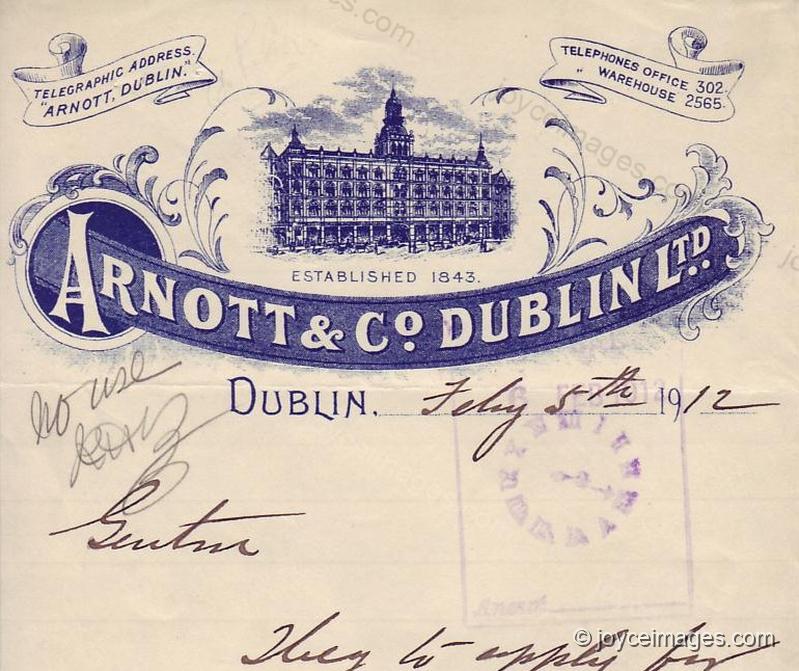 TELEGRAPHIC ADDRESS.
"ARNOTT, DUBLIN."
TELEPHONES OFFICE 302.
" WAREHOUSE 2565.
ESTABLISHED 1843.
ARNOTT & Co DUBLIN LTD.
no use
DUBLIN. Feby 5th 1912
Gentm
They to apply for
© joyceimages.com